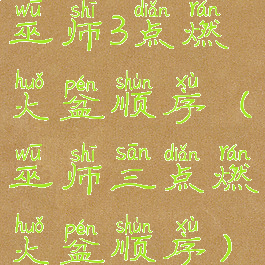 wū shī diǎn rán
巫师3点燃
huǒ pén shùn xù
火盆顺序(
wū shī sān diǎn rán
巫师三点燃
huǒ pén shùn xù
火盆顺序)